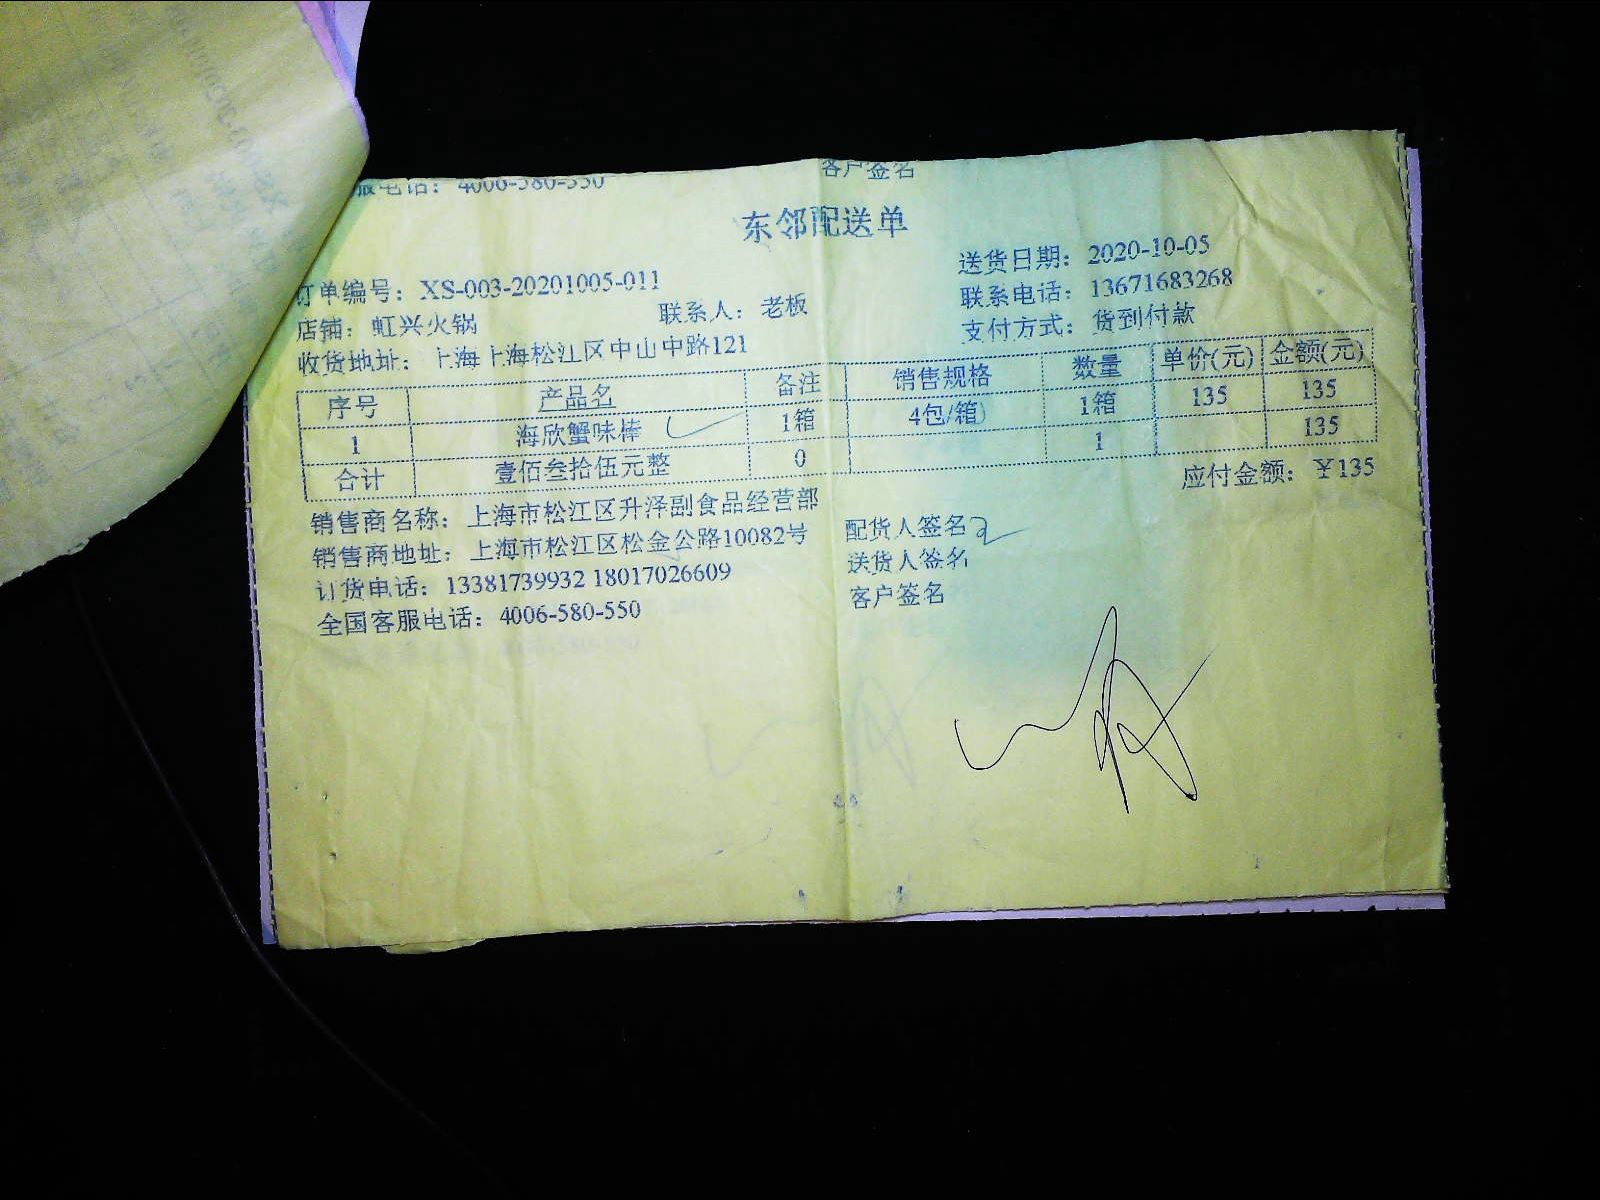 服电话：4006-580-550 客户签名
东邻配送单
订单编号：XS-003-20201005-011 送货日期：2020-10-05
店铺：虹兴火锅 联系人：老板 联系电话：13671683268
收货地址：上海上海松江区中山中路121 支付方式：货到付款
序号 产品名 备注 销售规格 数量 单价(元) 金额(元)
1 海欣蟹味棒 1箱 4包/箱 1箱 135 135
合计 壹佰叁拾伍元整 0 1 135
应付金额：￥135
销售商名称：上海市松江区升泽副食品经营部 配货人签名
销售商地址：上海市松江区松金公路10082号 送货人签名
订货电话：13381739932 18017026609 客户签名
全国客服电话：4006-580-550